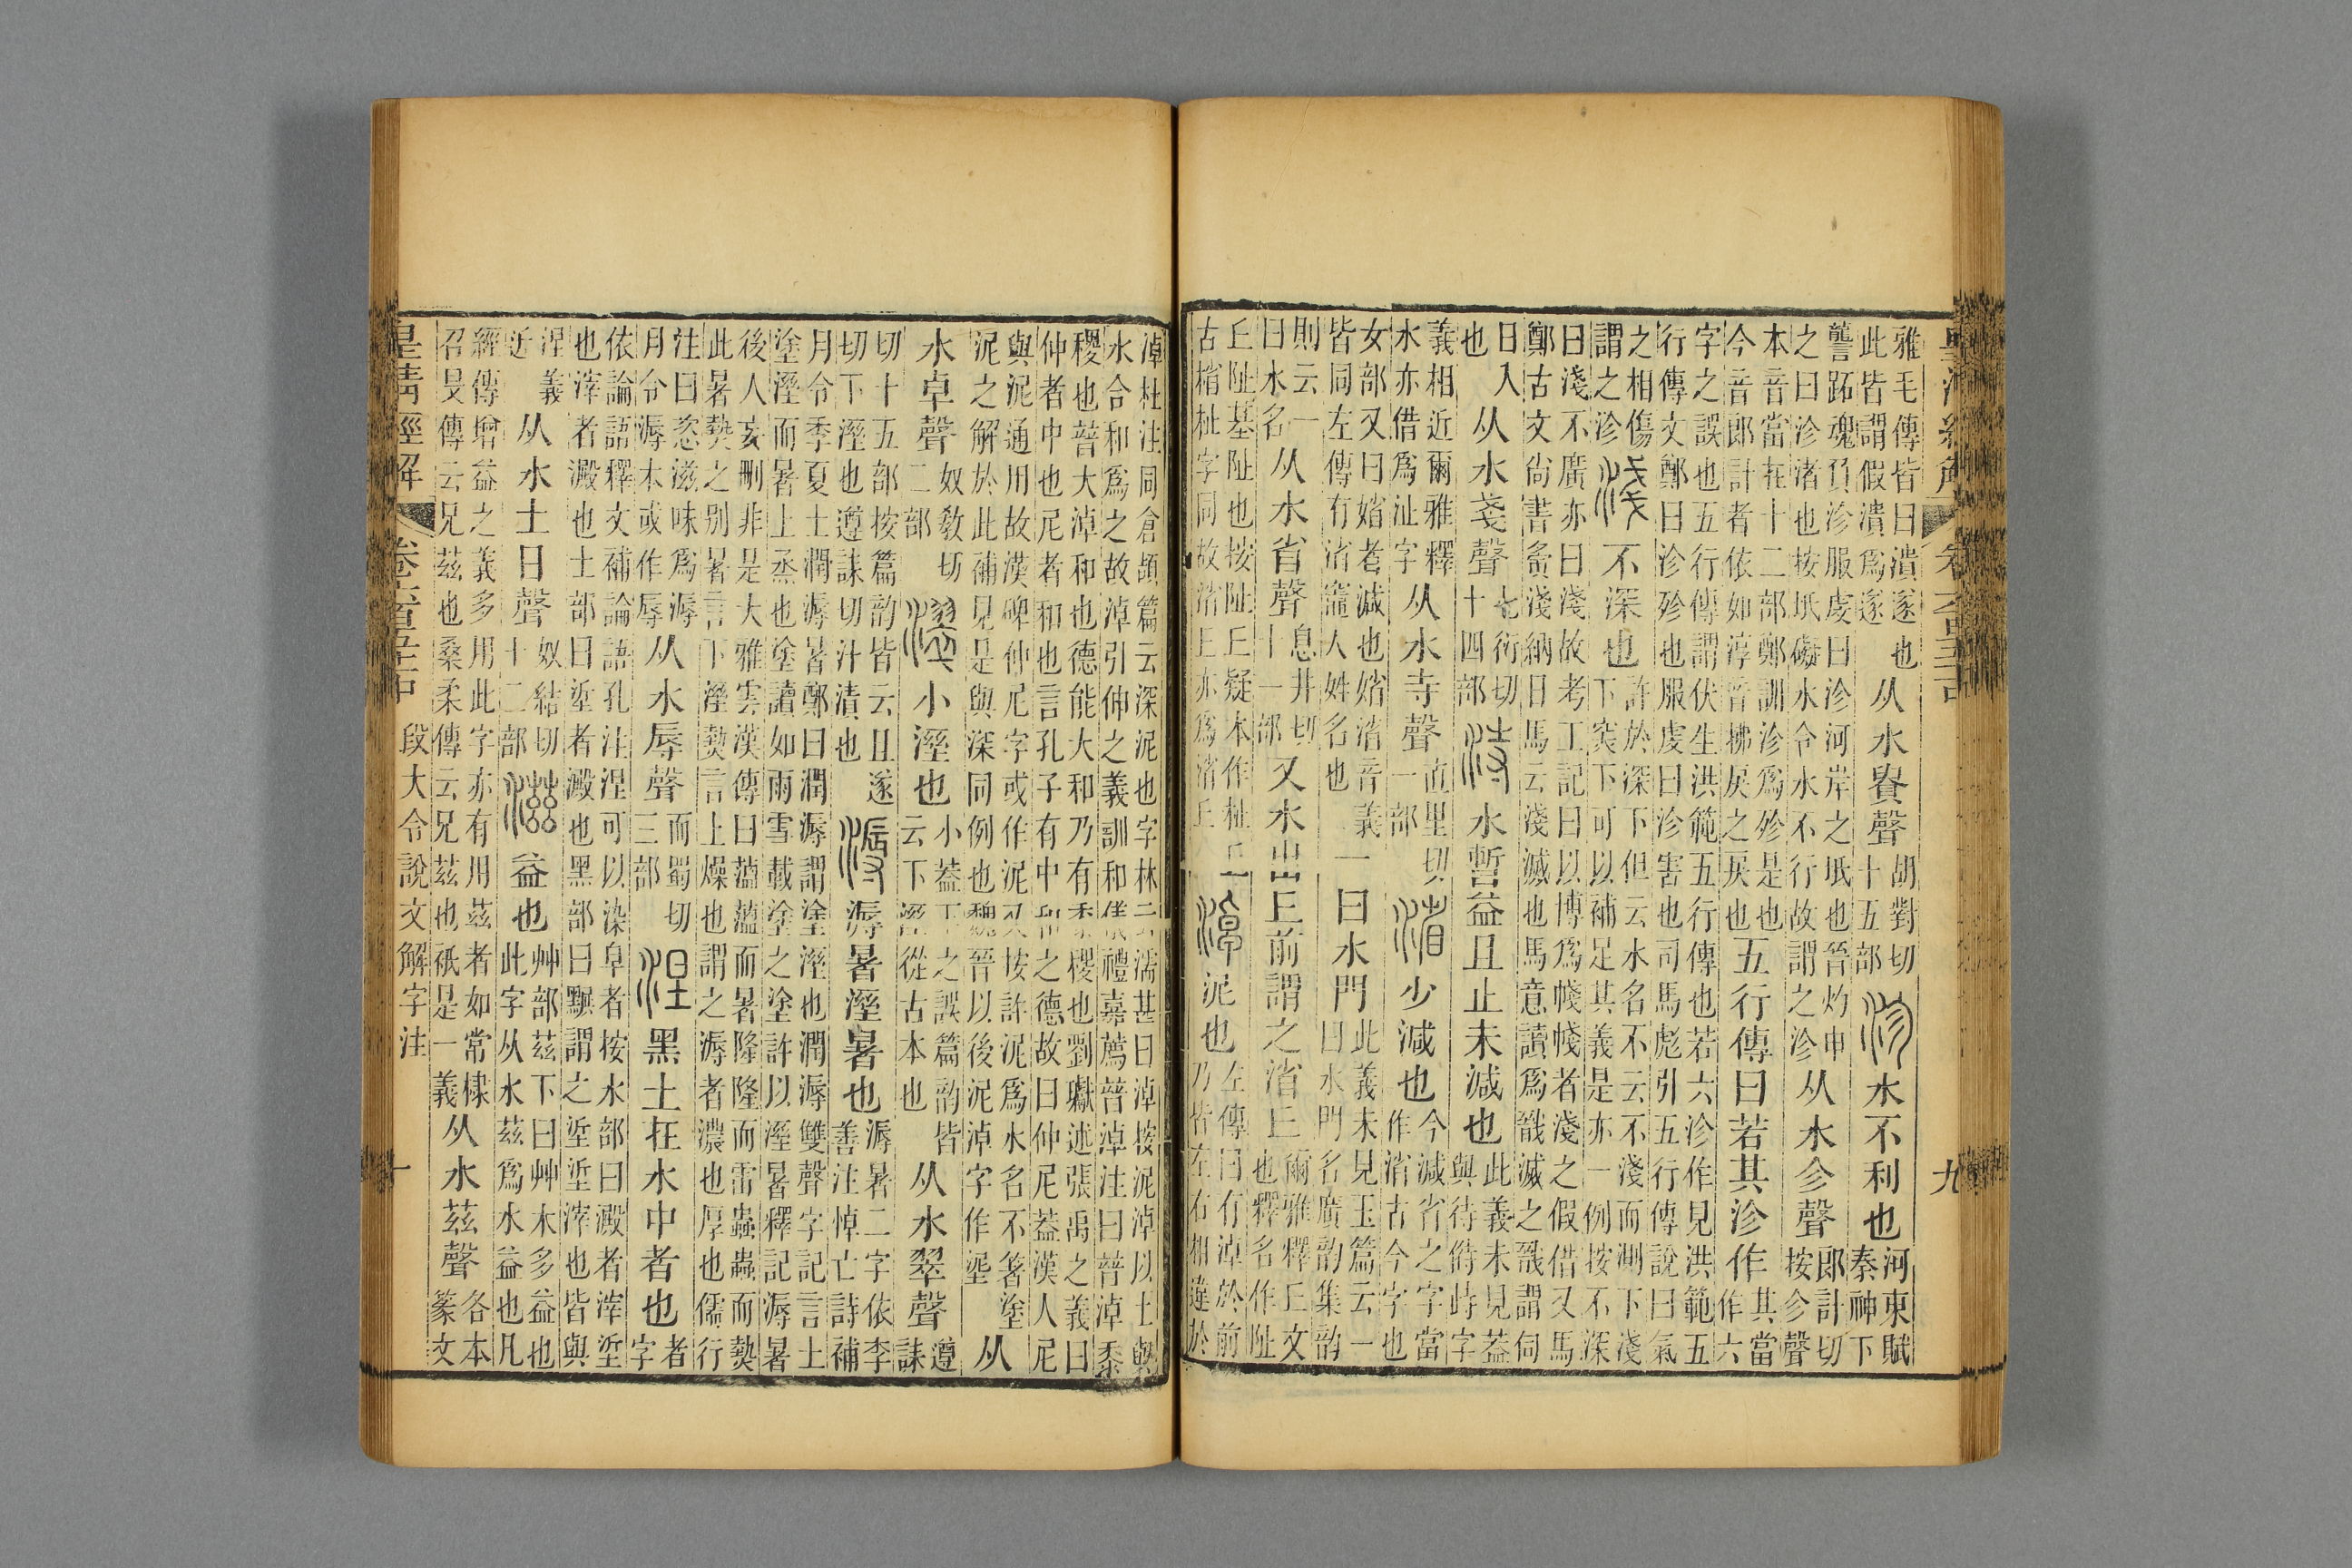 雅毛傳皆曰潰遂也
此皆謂假潰爲遂
从水貴聲
胡對切
十五部
沴
水不利也
河東賦
秦神下
讋跖魂負沴服虔曰沴河岸之坻也晉灼曰
之曰沴渚也按坻礙水令水不行故謂之沴
从水㐱聲
郎計切
按㐱聲
本音當在十二部鄭訓沴爲殄是也
今音郎計者依如淳音拂戾之戾也
五行傳曰若其沴作
其當
作六
字之誤也五行傳謂伏生洪範五行傳也若六沴作見洪範五
行傳文鄭曰沴殄也服虔曰沴害也司馬彪引五行傳說曰氣
之相傷
謂之沴
淺
不深也
許於深下但云水名不云不淺而測下淺
下窔下可以補足其義是亦一例按不深
曰淺不廣亦曰淺故考工記曰以博爲帴帴者淺之假借又馬
鄭古文尙書夤淺納日馬云淺滅也馬意讀爲戩滅之戩謂伺
日入
也
从水戔聲
七衍切
十四部
洔
水暫益且止未減也
此義未見葢
與待偫峙字
義相近爾雅釋
水亦借爲沚字
从水寺聲
直里切
一部
渻
少減也
今減省之字當
作渻古今字也
女部又曰婧者減也婧渻音義
皆同左傳有渻竈人姓名也
一曰水門
此義未見玉篇云一
曰水門名廣韵集韵
則云一
曰水名
从水省聲
息井切
十一部
又水出丘前謂之渻丘
爾雅釋丘文
也釋名作阯
丘阯基阯也按阯丘疑本作楮丘
古楮杜字同故渻丘亦爲渚丘
淖
泥也
左傳曰有淖於前
乃皆左右相違於
淖杜注同倉頡篇云深泥也字林云濡甚曰淖按泥淖以土與
水合和爲之故淖引伸之義訓和儀禮嘉薦普淖注曰普淖黍
稷也普大淖和也德能大和乃有黍稷也劉瓛述張禹之義曰
仲者中也尼者和也言孔子有中和之德故曰仲尼葢漢人尼
與泥通用故漢碑仲尼字或作泥又按許泥爲水名不箸塗
泥之解於此補見是與深同例也魏晉以後泥淖字作埿
从
水卓聲
奴敎切
二部
濢
小溼也
小葢下之誤篇韵皆
云下溼從古本也
从水翠聲
遵
誄
切十五部按篇韵皆云且遂
切下溼也遵誄切汁漬也
溽
溽暑溼暑也
溽暑二字依李
善注悼亡詩補
月令季夏土潤溽暑鄭曰潤溽謂塗溼也潤溽雙聲字記言土
塗溼而暑上烝也塗讀如雨雪載塗之塗許以溼暑釋記溽暑
後人妄刪非是大雅雲漢傳曰蘊蘊而暑隆隆而雷蟲蟲而熱
此暑熱之別暑言下溼熱言上燥也謂之溽者濃也厚也儒行
注曰恣滋味爲溽
月令溽本或作辱
从水辱聲
而蜀切
三部
涅
黑土在水中者也
者
字
依論語釋文補論語孔注涅可以染皁者按水部曰澱者滓垽
也滓者澱也土部曰垽者澱也黑部曰黰謂之垽垽滓也皆與
涅義
近
从水土日聲
奴結切
十二部
滋
益也
艸部茲下曰艸木多益也
此字从水茲爲水益也凡
經傳增益之義多用此字亦有用茲者如常棣
召旻傳云兄茲也桑柔傳云兄茲也衹是一義
从水茲聲
各本
篆文
皇淸經解
卷六百五十中
段大令說文解字注
十
九